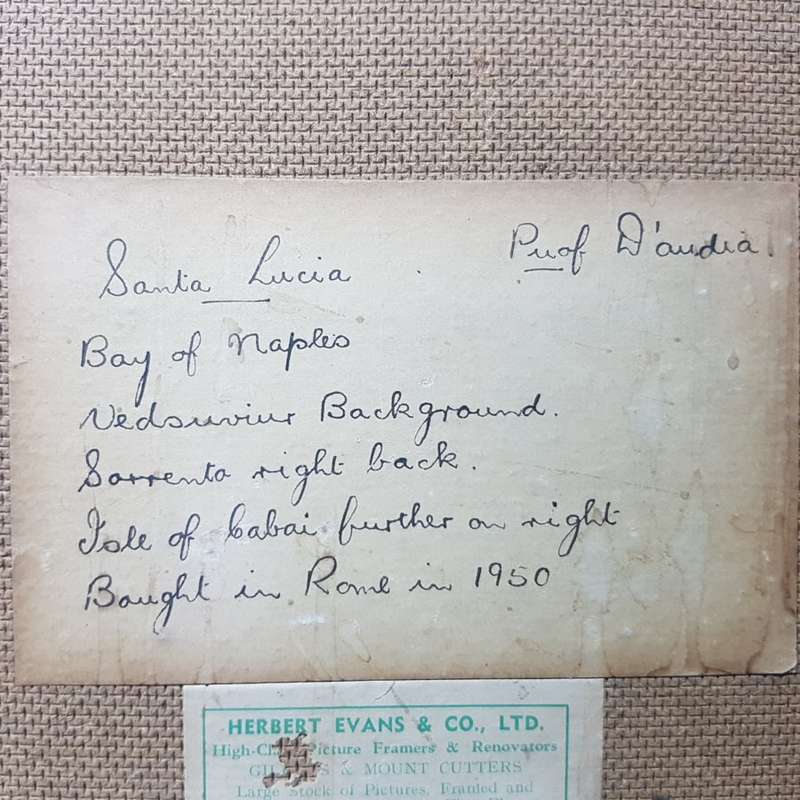 Santa Lucia Prof D'andia
Bay of Naples
Vedsuviur Background.
Sorrento right back.
Isle of Cabai further on right
Bought in Rome in 1950
HERBERT EVANS & CO., LTD.
High-Cl Picture Framers & Renovators
& MOUNT CUTTERS
Large Stock of Pictures, Framed and